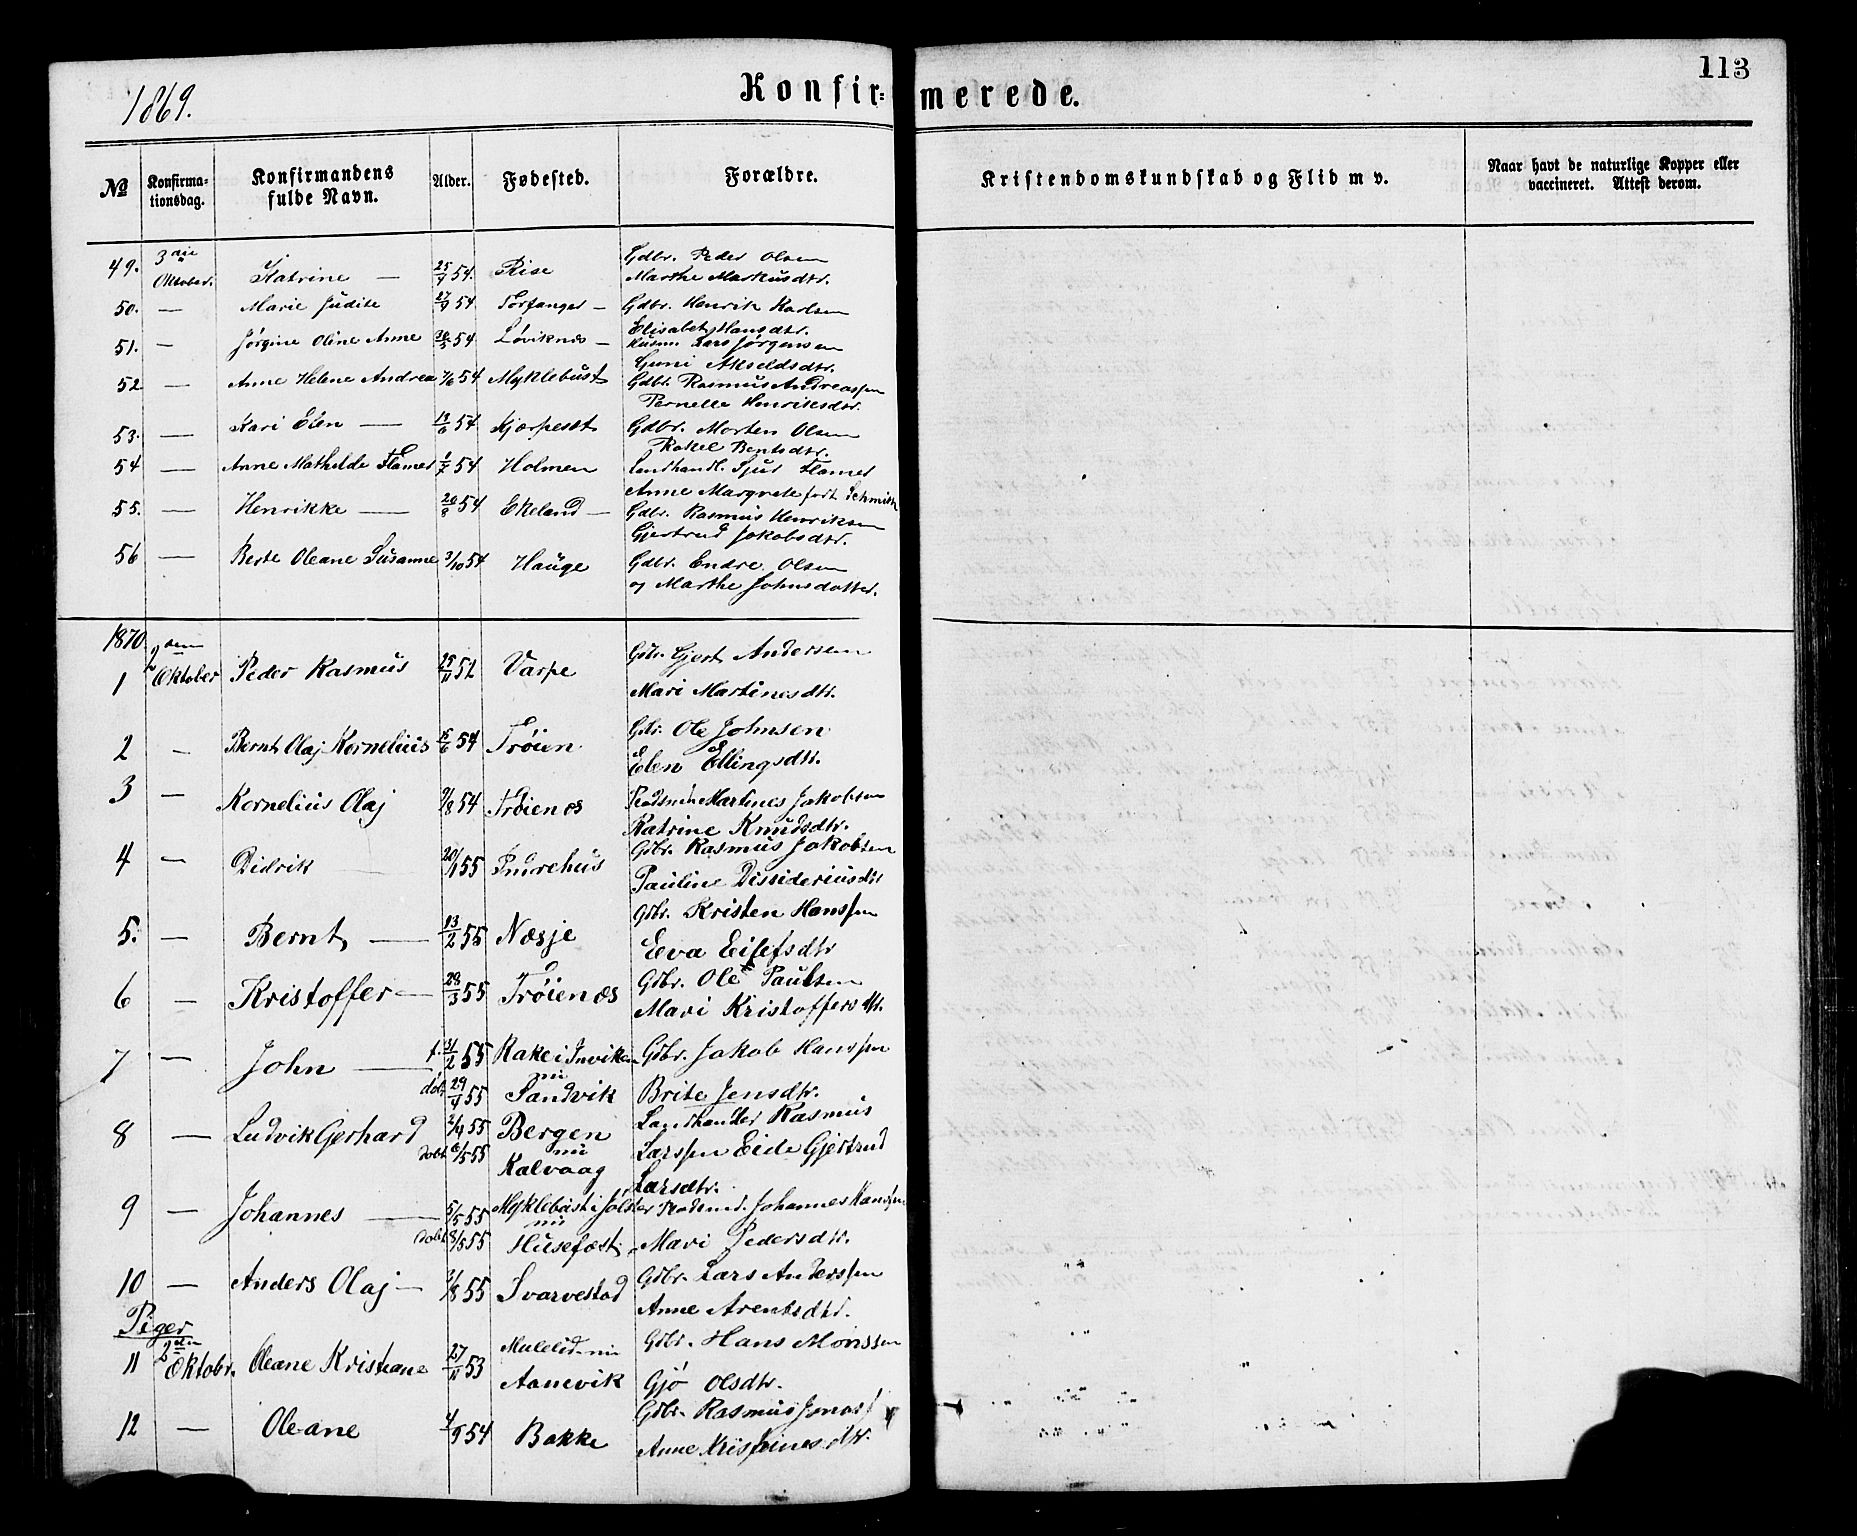 1869.
Konfir=merede.
113
№
Konfirma-tionsdag.
Konfirmandens fulde Navn.
Alder.
Fødested.
Forældre.
Kristendomskundskab og Flid m v.
Naar havt de naturlige Kopper eller vaccineret. Attest derom.
49. 3die Oktober. Katrine — 25/4 54. Rise Gdbr. Peder Olsen
Marthe Markusdtr.
50. — Marie Judite 27/9 54 Torfanger — Gdbr. Henrik Karlsen
Elisabet Hansdtr.
51. — Jørgine Oline Anne 30/5 54. Løviknes — Husm Lars Jørgensen
Guni Akseldsdtr.
52 — Anne Helene Andrea 7/6 54 Myklebust Gdbr. Rasmus Andreassen
Pernelle Henriksdtr.
53. — Kari Elen — 13/6 54. Kjærpeset Gdbr. Morten Olsen
Rakel Bentsdtr.
54 — Anne Mathilde Flamer 1/7 54 Holmen Landhandl. Sjur Flamer
Anne Margrete født Schmidt
55. — Henrikke — 20/8 54 Ekeland — Gdbr. Rasmus Henriksen
Gjertrud Jakobsdtr.
56 — Berte Oleane Susanne 3/10 54 Hauge Gdbr. Endre Olsen
og Marthe Johnsdotter.
1870.
1 2den Oktober Peder Rasmus 25/11 52 Varpe Gdbr. Gjert Andersen
Mari Martinesdtr.
2 — Bernt Olaj Kornelius 15/6 54 Trøien Gdbr. Ole Johnsen
Elen Ellingsdtr.
3 — Kornelius Olaj 9/8 54 Trøienes Pladsmd Martines Jakobsen
Katrine Knudsdtr.
4 — Didrik 20/1 55 Indrehus Gdbr. Rasmus Jakobsen
Pauline Dissideriusdtr
5. — Bernt — 13/2 55 Nesje Gdbr. Kristen Hanssen
Eva Eilefsdtr
6 — Kristoffer — 28/3 55 Trøienes Gdbr. Ole Paulsen
Mari Kristoffersdtr.
7 — John — f. 31/2 55 Rake i Inviken Gdbr. Jakob Hanssen
døb. 29/4 55 nu Sandvik Brite Jensdtr.
8 — Ludvik Gerhard 2/4 55 Bergen Landhandler Rasmus
døbt 6/5 55 nu Kalvaag Larssen Eide Gjertrud
Larsdtr.
9 — Johannes — 5/5 55 Myklebust i Jølster Pladsmd. Johannes Hanssen
døbt 8/5 55 nu Husefest Mari Pedersdtr.
10 — Anders Olaj — 2/8 55 Svarvestad Gdbr. Lars Anderssen
Anne Arentsdtr.
Piger
11 2den Oktobr. Oleane Kristiane 27/11 53 Mulelid nu Gdbr. Hans Monssen
Aanevik Gjø Olsdtr.
12 — Oleane 4/9 54 Bakke Gdbr. Rasmus
Anne Kristinesdtr.